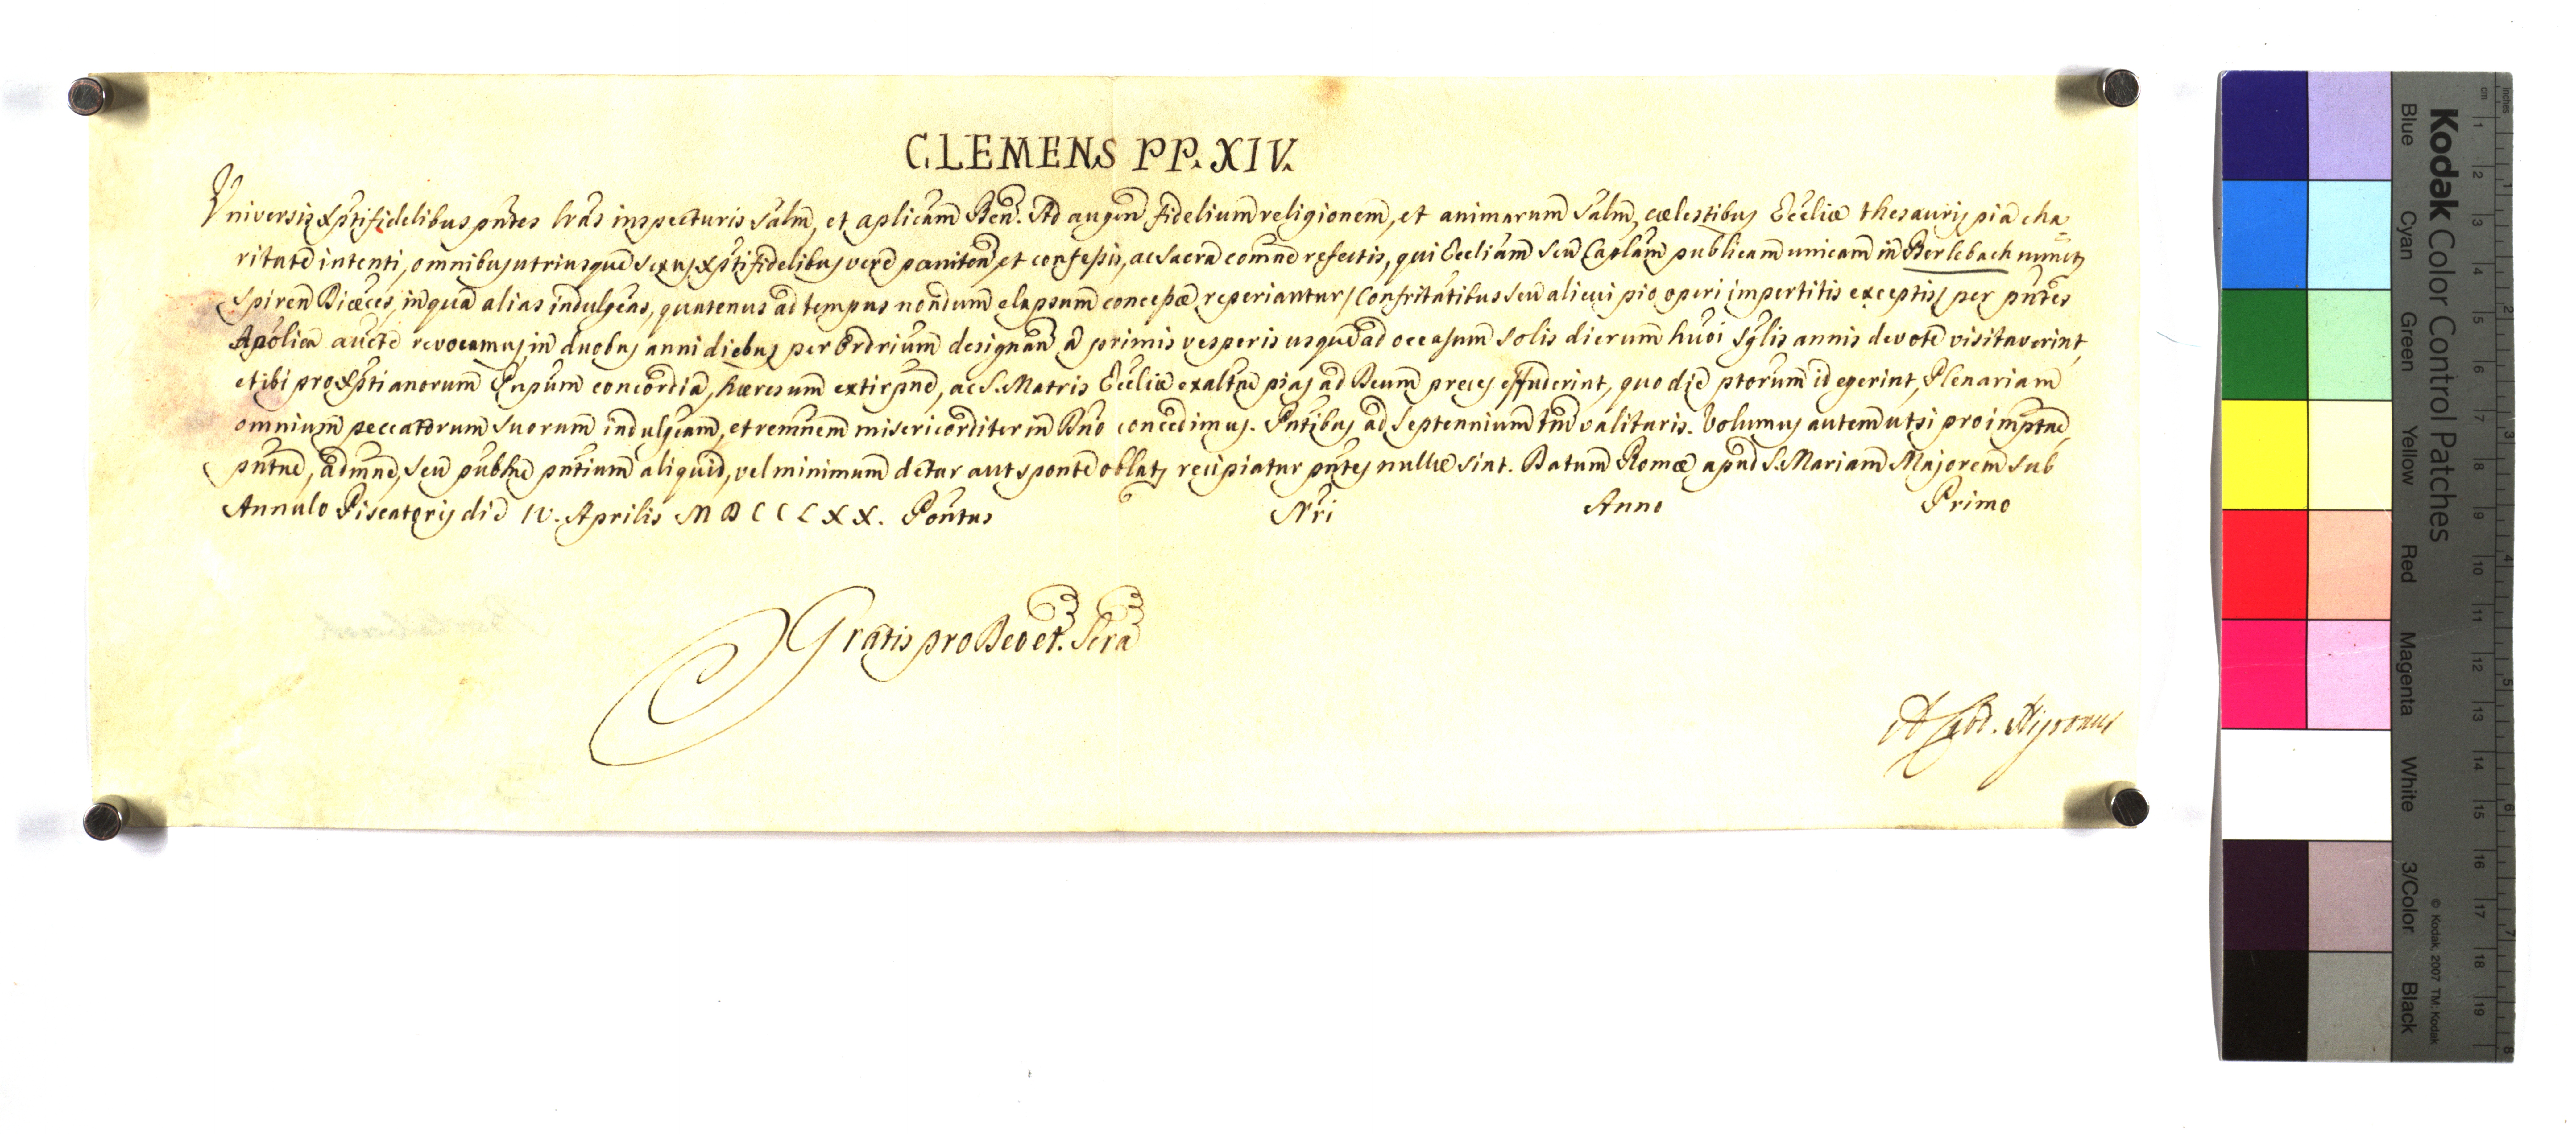 CLEMENS PP. XIV.
Universis Xpti fidelibus pntes lras inspecturis Salm, et aplicam Ben. Ad augen fidelium religionem, et animarum Salm, cælestibus Eccliæ thesauris pia cha-
ritate intenti, omnibus utriusque sexus Xpti fidelibus vere pœniten et confessis, ac Sacra comne refectis, qui Eccliam seu Caplam publicam unicam in Berlebach nuncup
Spiren Diœces, in qua alias indulgeas, quatenus ad tempus nondum elapsum concessæ reperiantur / Confritatibus seu alicui pio operi impertitis exceptis / per pntes
Apolica aucte revocamus, in duobus anni diebus per Ordrium designan a primis vesperis usque ad occasum solis dierum huoi sglis annis devote visitaverint,
et ibi pro Xptianorum Pnpum concordia, hæresum extirpne, ac S. Matris Eccliæ exaltne pias ad Deum preces effuderint, quo die ptorum id egerint, Plenariam
omnium peccatorum suorum indulgeam, et remnem misericorditer in Dno concedimus. Pntibus ad Septennium tm valituris. Volumus autem ut si pro imptne,
pntne, admne, seu publne pntium aliquid, vel minimum detur aut sponte oblat recipiatur pntes nullæ sint. Datum Romæ apud S. Mariam Majorem sub
Annulo Piscatoris die IV. Aprilis MDCCLXX. Pontus Nri Anno Primo
Gratis pro Deo et Scra
Kodak Color Control Patches
Blue Cyan Green Yellow Red Magenta White 3/Color Black
© Kodak, 2007 TM: Kodak
cm 1 2 3 4 5 6 7 8 9 10 11 12 13 14 15 16 17 18 19
inches 1 2 3 4 5 6 7 8